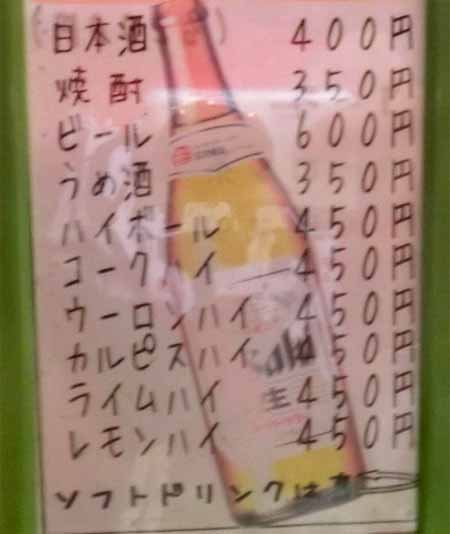 日本酒 400円
焼酎 350円
ビール 600円
うめ酒 350円
ハイボール 450円
コークハイ 450円
ウーロンハイ 450円
カルピスハイ 450円
ライムハイ 450円
レモンハイ 450円
ソフトドリンクは
生